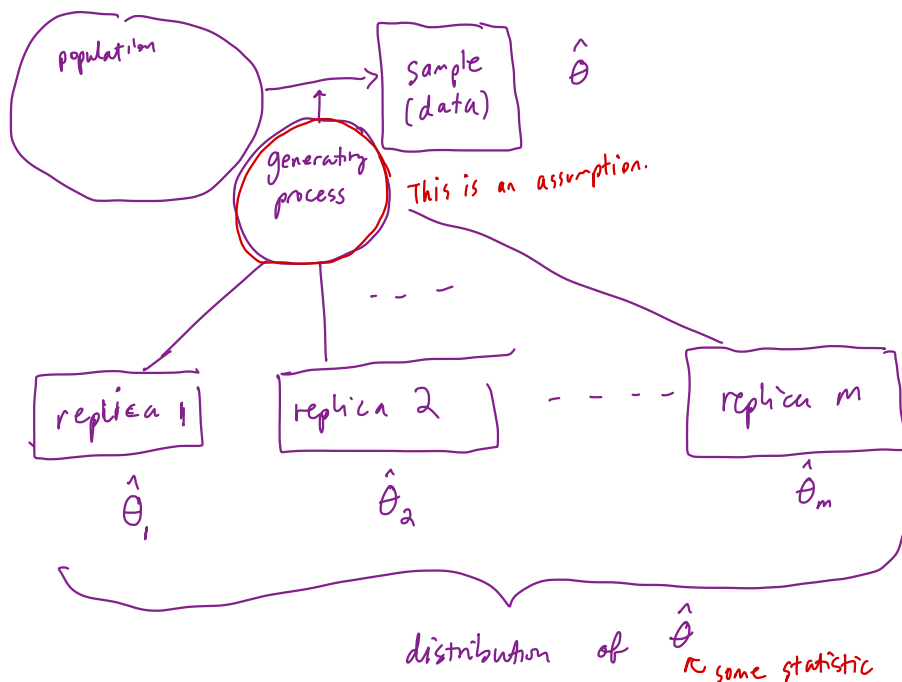 population
sample
(data)
θ̂
generating
process
This is an assumption.
- - -
replica 1
replica 2
- - - -
replica m
θ̂₁
θ̂₂
θ̂ₘ
distribution of θ̂
↖ some statistic